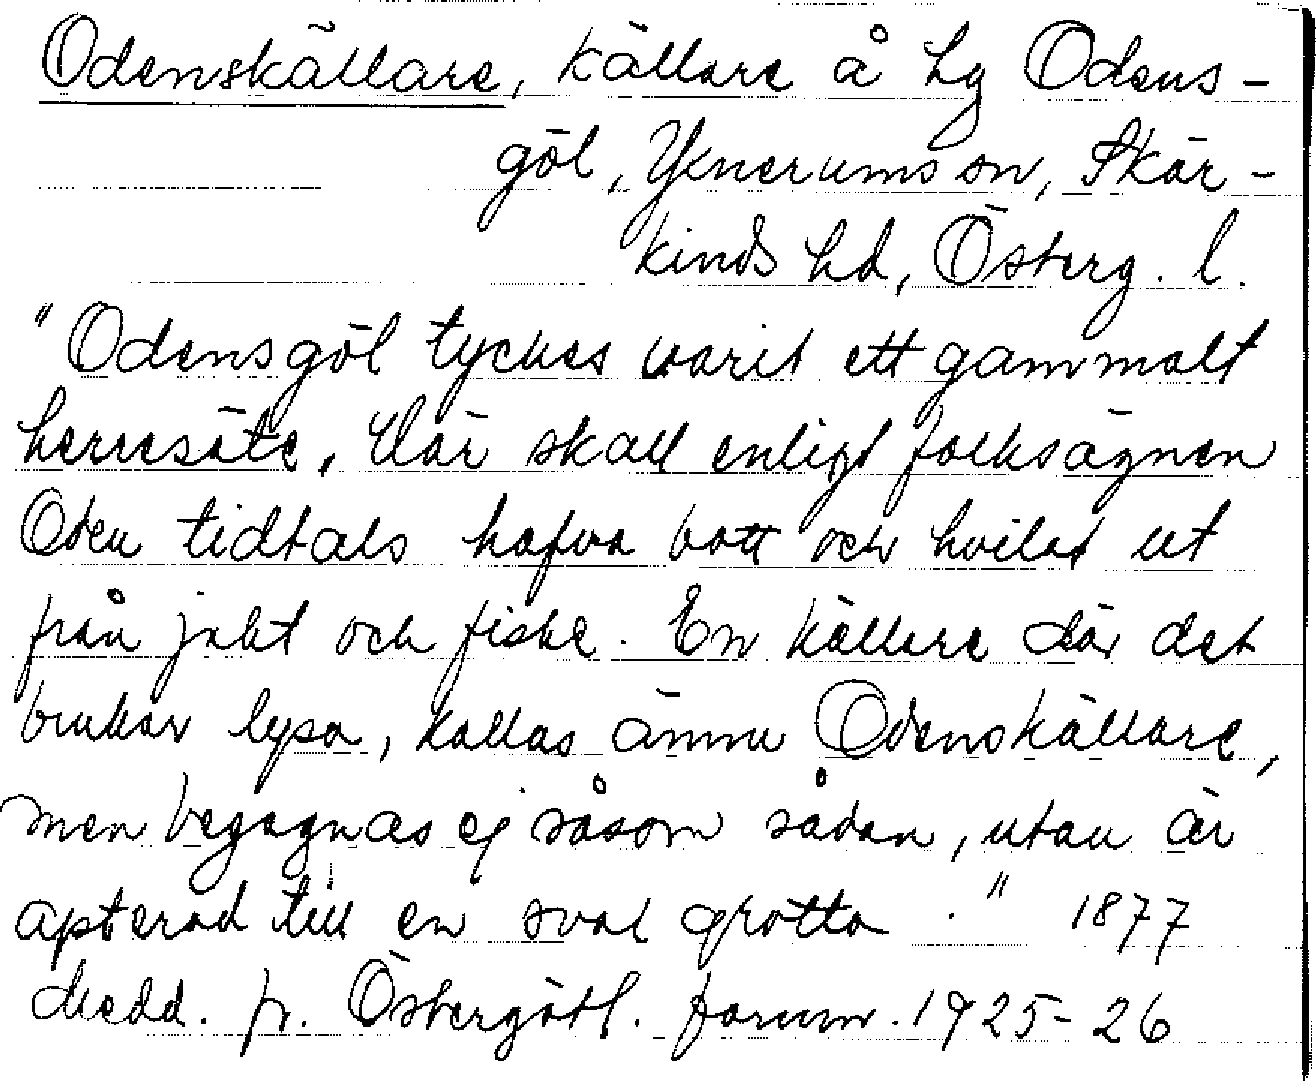 Odenskällare, källare å hg Odens-
göl, Yxnerums sn, Skär-
kinds hd, Österg. l.
"Odensgöl tyckes varit ett gammalt
herresäte, där skall enligt folksägnen
Oden tidtals hafva bott och hvilat ut
från jakt och fiske. En källare där det
brukar lysa, kallas ännu Odenskällare,
men begagnas ej såsom sådan, utan är
apterad till en sval grotta." 1877
Medd. fr. Östergötl. fornm. 1925-26